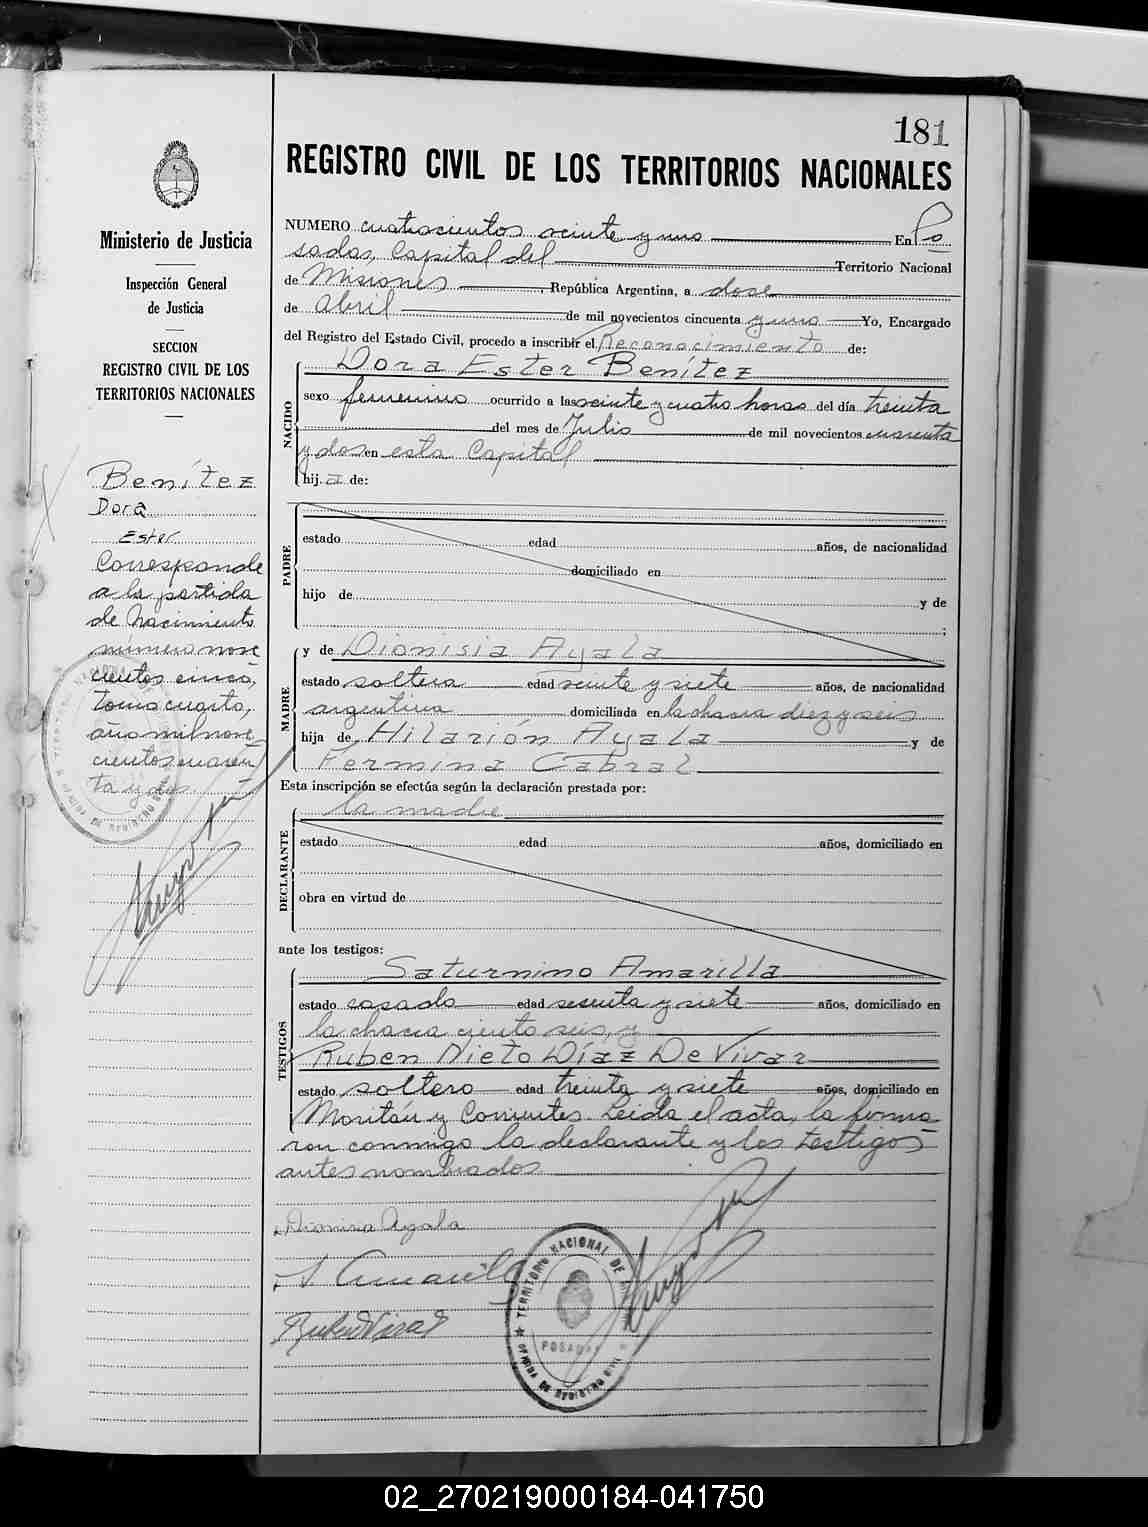 181
REGISTRO CIVIL DE LOS TERRITORIOS NACIONALES
Ministerio de Justicia
Inspección General
de Justicia
SECCION
REGISTRO CIVIL DE LOS
TERRITORIOS NACIONALES
Benítez
Dora
Ester
Corresponde
a la partida
de nacimiento
número nove
cientos cinco,
tomo cuarto,
año mil nove
cientos cuaren
ta y dos.
NUMERO cuatrocientos veinte y uno En Po
sadas, Capital del Territorio Nacional
de Misiones, República Argentina, a dose
de abril de mil novecientos cincuenta y uno Yo, Encargado
del Registro del Estado Civil, procedo a inscribir el Reconocimiento de:
Dora Ester Benítez
NACIDO
sexo femenino ocurrido a las veinte y cuatro horas del día treinta
del mes de Julio de mil novecientos cuarenta
y dos en esta Capital
hij a de:
PADRE
estado edad años, de nacionalidad
domiciliado en
hijo de y de
;
MADRE
y de Dionisia Ayala
estado soltera edad veinte y siete años, de nacionalidad
argentina domiciliada en la chacra diez y seis
hija de Hilarión Ayala y de
Fermina Cabral
Esta inscripción se efectúa según la declaración prestada por:
la madre
DECLARANTE
estado edad años, domiciliado en
obra en virtud de
ante los testigos:
TESTIGOS
Saturnino Amarilla
estado casado edad sesenta y siete años, domiciliado en
la chacra ciento seis, y
Ruben Nieto Díaz De Vivar
estado soltero edad treinta y siete años, domiciliado en
Moritán y Corrientes. Leída el acta, la firma
ron conmigo la declarante y los testigos
antes nombrados
Dionisia Ayala
S. Amarilla
TERRITORIO NACIONAL DE
POSADAS
OFICINA DE REGISTRO CIVIL
02_270219000184-041750